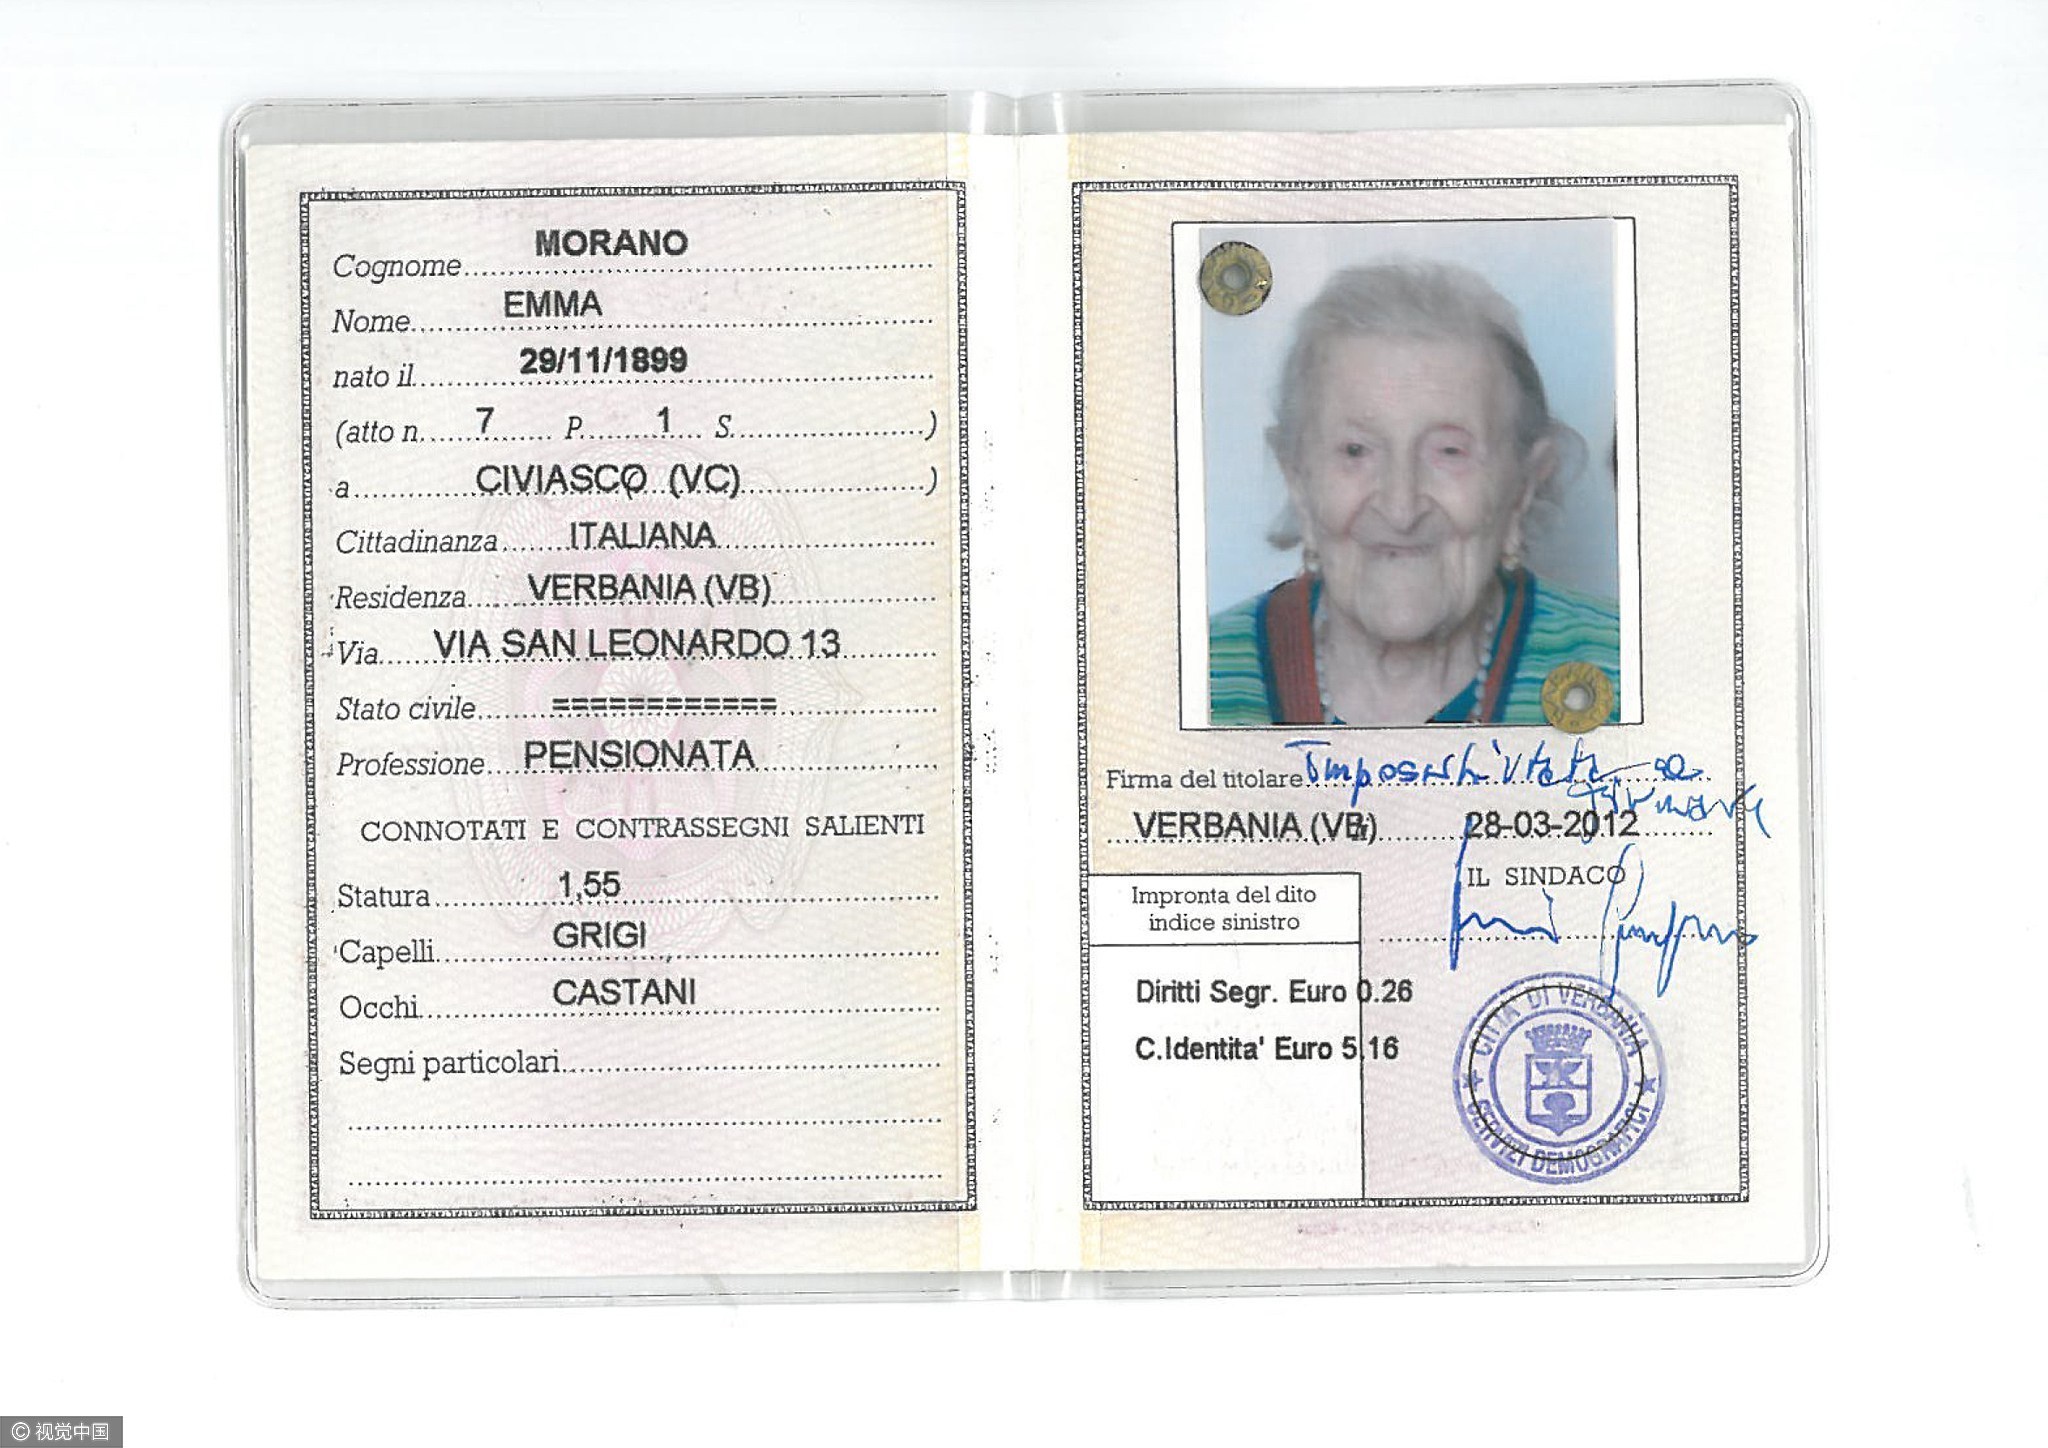 Cognome MORANO
Nome EMMA
nato il 29/11/1899
(atto n. 7 P. 1 S. )
a CIVIASCO (VC) )
Cittadinanza ITALIANA
Residenza VERBANIA (VB)
Via VIA SAN LEONARDO 13
Stato civile ============
Professione PENSIONATA
CONNOTATI E CONTRASSEGNI SALIENTI
Statura 1,55
Capelli GRIGI
Occhi CASTANI
Segni particolari
Firma del titolare Impossibilitata a
firmare
VERBANIA (VB) 28-03-2012
IL SINDACO
Impronta del dito
indice sinistro
Diritti Segr. Euro 0.26
C.Identita' Euro 5,16
CITTÀ DI VERBANIA
SERVIZI DEMOGRAFICI
© 视觉中国